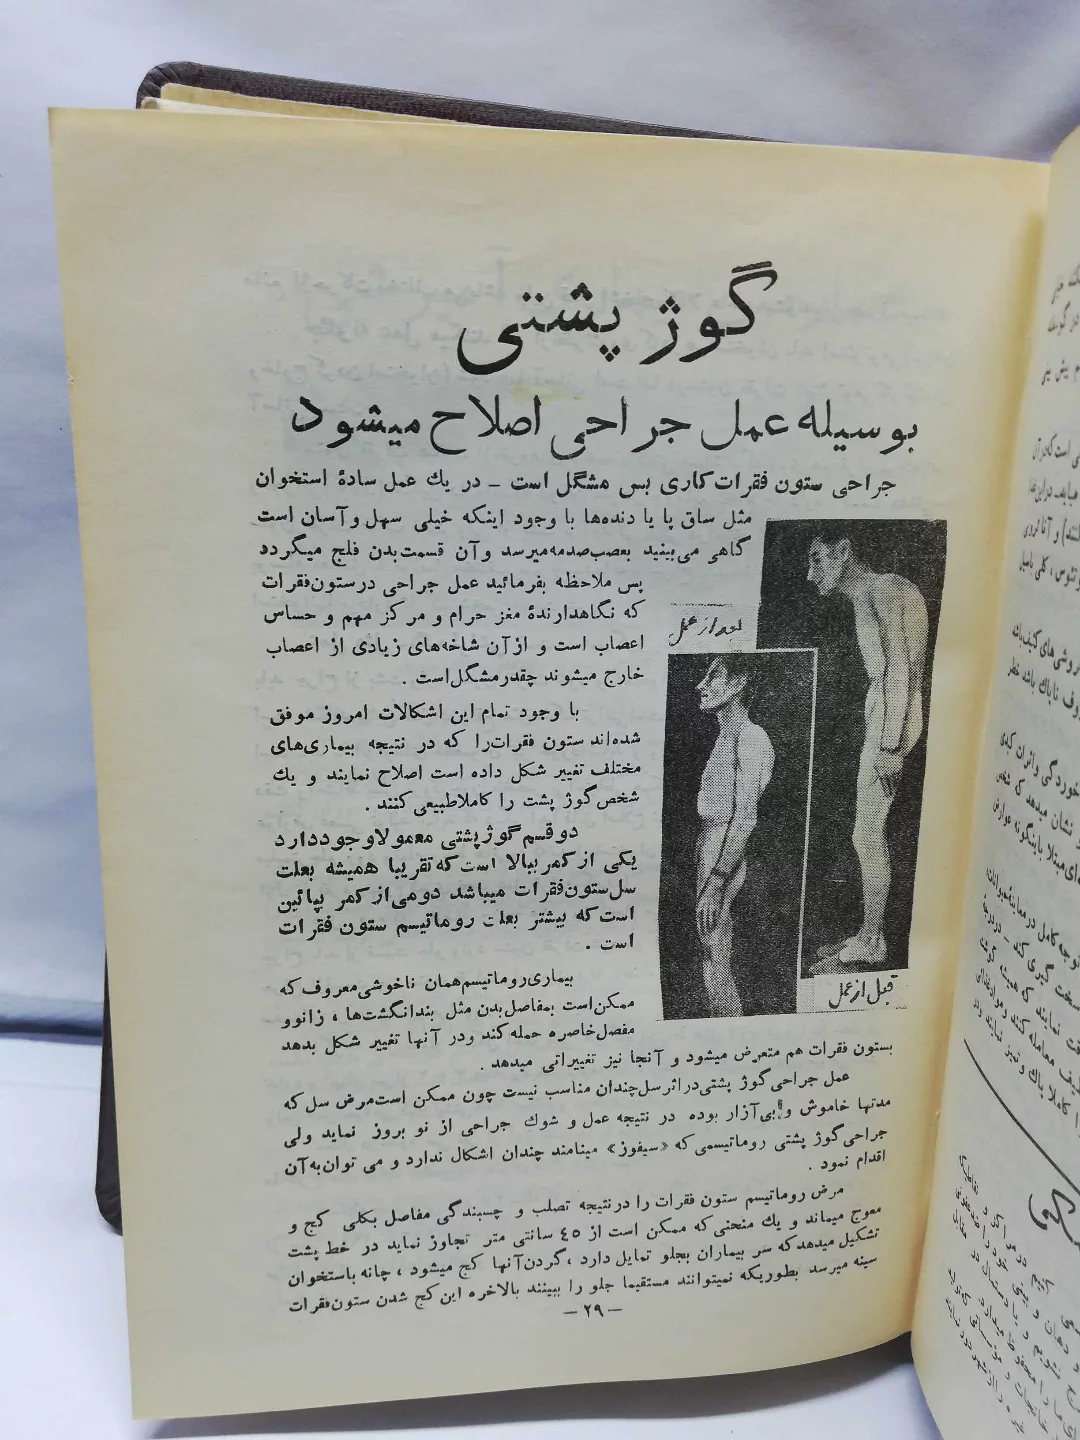 گوژ پشتی
بوسیله عمل جراحی اصلاح میشود
جراحی ستون فقرات کاری بس مشگل است ـ در یك عمل سادۀ استخوان
مثل ساق پا یا دنده‌ها با وجود اینکه خیلی سهل و آسان است
گاهی می‌بینید بعصب صدمه میرسد و آن قسمت بدن فلج میگردد
پس ملاحظه بفرمائید عمل جراحی در ستون فقرات
که نگاهدارندۀ مغز حرام و مرکز مهم و حساس
اعصاب است و از آن شاخه‌های زیادی از اعصاب
خارج میشوند چقدر مشگل است .
با وجود تمام این اشکالات امروز موفق
شده‌اند ستون فقرات را که در نتیجه بیماری‌های
مختلف تغییر شکل داده است اصلاح نمایند و یك
شخص گوژ پشت را کاملا طبیعی کنند .
دو قسم گوژ پشتی معمولا وجود دارد
یکی از کمر ببالا است که تقریبا همیشه بعلت
سل ستون فقرات میباشد دومی از کمر بپائین
است که بیشتر بعلت روماتیسم ستون فقرات
است .
بیماری روماتیسم همان ناخوشی معروف که
ممکن است بمفاصل بدن مثل بند انگشت‌ها ، زانو و
مفصل خاصره حمله کند و در آنها تغییر شکل بدهد
بستون فقرات هم متعرض میشود و آنجا نیز تغییراتی میدهد .
عمل جراحی گوژ پشتی در اثر سل چندان مناسب نیست چون ممکن است مرض سل که
مدتها خاموش و بی‌آزار بوده در نتیجه عمل و شوك جراحی از نو بروز نماید ولی
جراحی گوژ پشتی روماتیسمی که «سیفوز» مینامند چندان اشکال ندارد و می توان به آن
اقدام نمود .
مرض روماتیسم ستون فقرات را در نتیجه تصلب و چسبندگی مفاصل بکلی کج و
معوج میماند و یك منحنی که ممکن است از ٤٥ سانتی متر تجاوز نماید در خط پشت
تشکیل میدهد که سر بیماران بجلو تمایل دارد ، گردن آنها کج میشود ، چانه باستخوان
سینه میرسد بطوریکه نمیتوانند مستقیما جلو را ببینند بالاخره این کج شدن ستون فقرات
ـ ۲۹ ـ
بعد از عمل
قبل از عمل